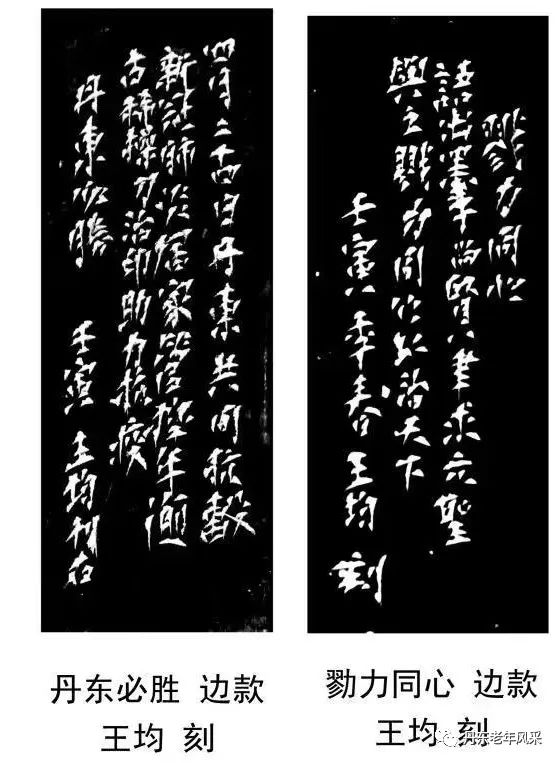 四月二十四日丹東共同抗擊
新冠肺炎居家管控年逾
古稀操刀治印助力抗疫
丹東必勝 壬寅 王均刊石
戮力同心
語出墨子尚賢聿求元聖
與之戮力同心以治天下
壬寅年春王均刻
丹东必胜 边款
王均 刻
勠力同心 边款
王均 刻
丹东老年风采